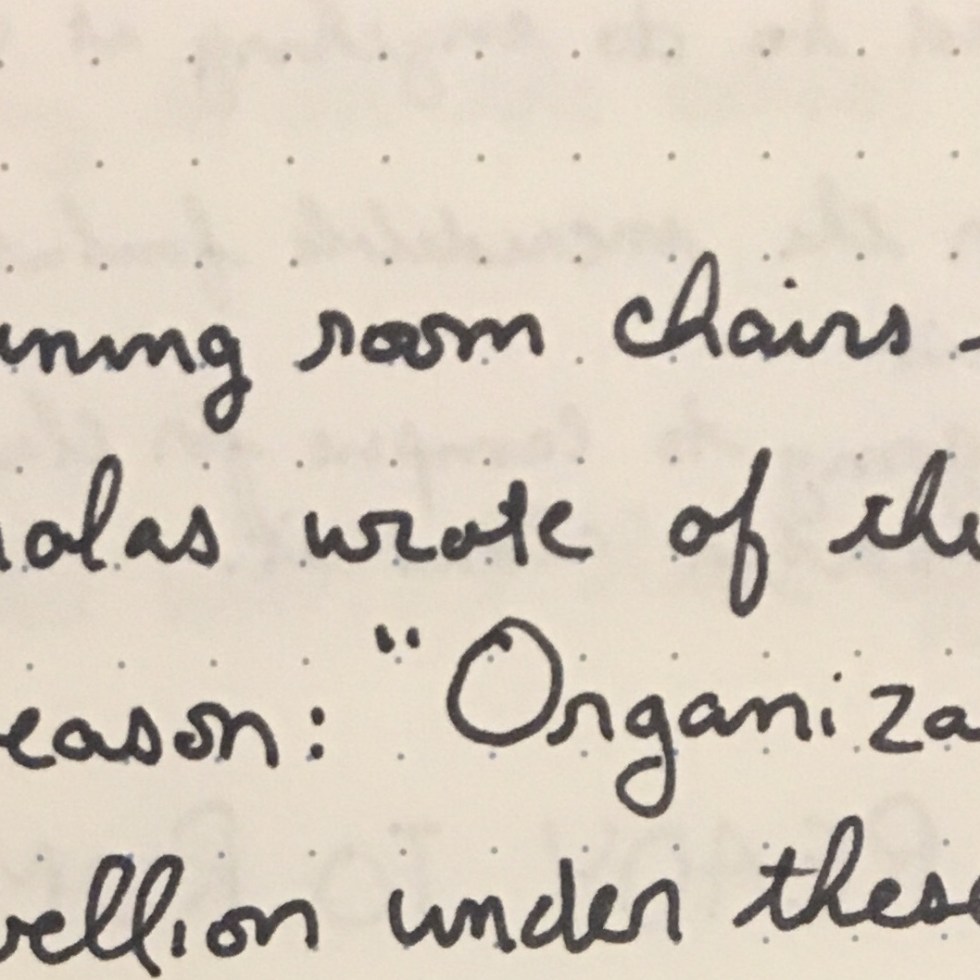 ining room chairs -
olas wrote of the
eason: "Organiza
vellion under these